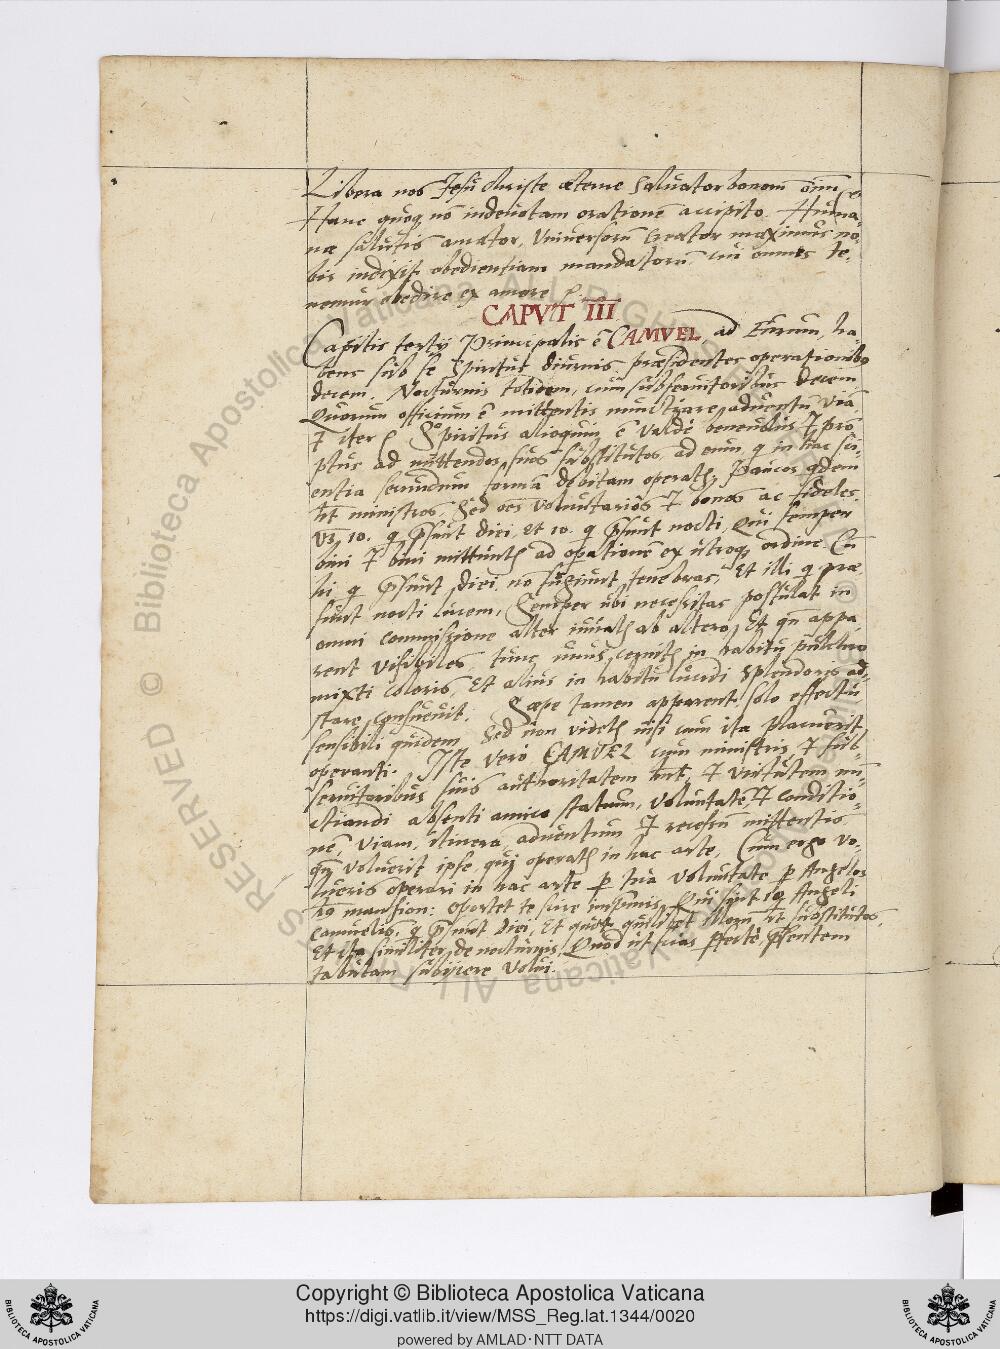 Libera nos Jesu Christe æterne Salvator bonorū oīm
Hanc quoq nō indevotam orationē accipito. Huma-
næ salutis amator, Universorū Creator maximus no-
bis indixit obedientiam mandatorū, cui omnes te-
nemur obedire ex amore
CAPVT III
Capitis tertij Principalis ē CAMVEL ad Eurum, ha-
bens sub se Spiritus diurnis præsidentes operationibs
decem. Nocturnis totidem, cum subservitoribus decem.
Quorum officium ē mittentis nunctiare adventū, viā,
et iter. Spiritus alioquin ē valdè benevolus et prō
ptus ad mittendos suos substitutos ad eum, q in hac sci-
entia secundum formā debitam operat, Paucos qdem
ht ministros, Sed oēs voluntarios et bonos ac fideles.
Vz 10. q psunt diei, et 10. q psunt nocti, Qui semper
bini et bini mittunt ad opationē ex utroq ordine. Cū
hi q psunt diei nō fugiunt tenebras, Et illi q præ-
sunt nocti lucem, Semper ubi necessitas postulat in
omni commissione alter iuvat ab altero, Et qn appa-
rent visibiles, tunc unus cernit in habitu pulchro
mixti coloris, Et alius in habitu lucidi splendoris ad-
stare consuevit. Sæpe tamen apparent solo effectu
sensibili quidem Sed non videt nisi cum ita placuerit
operanti. Iste verò CAMVEL cum ministris et sub-
servitoribus suis authoritatem ht, et virtutem nū-
ctiandi absenti amico statum, voluntatē et conditio-
nē viam, itinera, adventum et recessū mittentis
qn voluerit ipse, qui operat in hac arte. Cum ergo vo-
lueris operari in hac arte p tua voluntate p Angelos
mansion: oportet te scire inprimis, Qui sint Angeli
Camuelis, q psunt diei, Et quot quilibet illorū ht substitutos,
Et ita similiter de nocturnis, Quod ut scias pfectè, psentem
tabulam subijcere volui.
© Biblioteca Apostolica Vaticana ALL RIGHTS RESERVED
Copyright © Biblioteca Apostolica Vaticana
https://digi.vatlib.it/view/MSS_Reg.lat.1344/0020
powered by AMLAD·NTT DATA
BIBLIOTECA APOSTOLICA VATICANA
BIBLIOTECA APOSTOLICA VATICANA